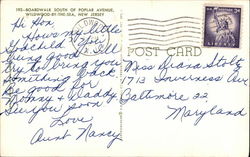 195—BOARDWALK SOUTH OF POPLAR AVENUE,
WILDWOOD-BY-THE-SEA, NEW JERSEY
Hi Hon
How's my little
Godchild? You
being good? I'll
try to bring you
something back.
Be good for
Mommy & Daddy.
See you soon
Love
Aunt Nancy
POST CARD
Miss Diana Stolz
1713 Inverness Ave
Baltimore 22
Maryland